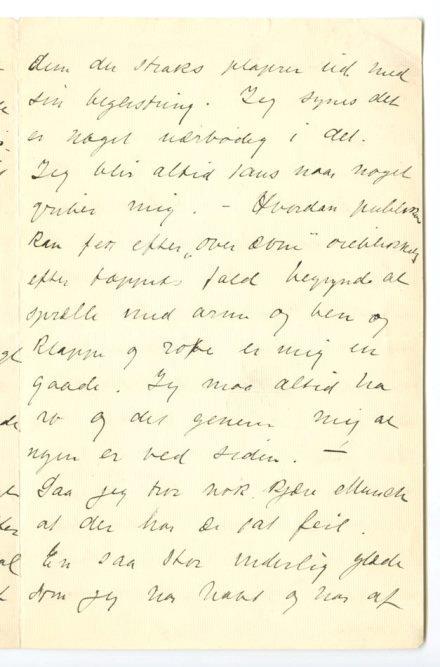 dem der straks plaprer ud med
sin begeistring. Jeg synes det
er noget uærbødig i det.
Jeg blir altid taus naar noget
griber mig. – Hvordan publikum
kan for efter „over ævne" øieblikkelig
efter tæppets fald begynde at
sprælle med arme og ben og
klappe og robe er mig en
gaade. Jeg maa altid ha
ro og det generer mig at
nogen er ved siden. –
Saa jeg tror nok kjære Munch
at der har De tat feil.
En saa stor inderlig glæde
som jeg har havt og har af